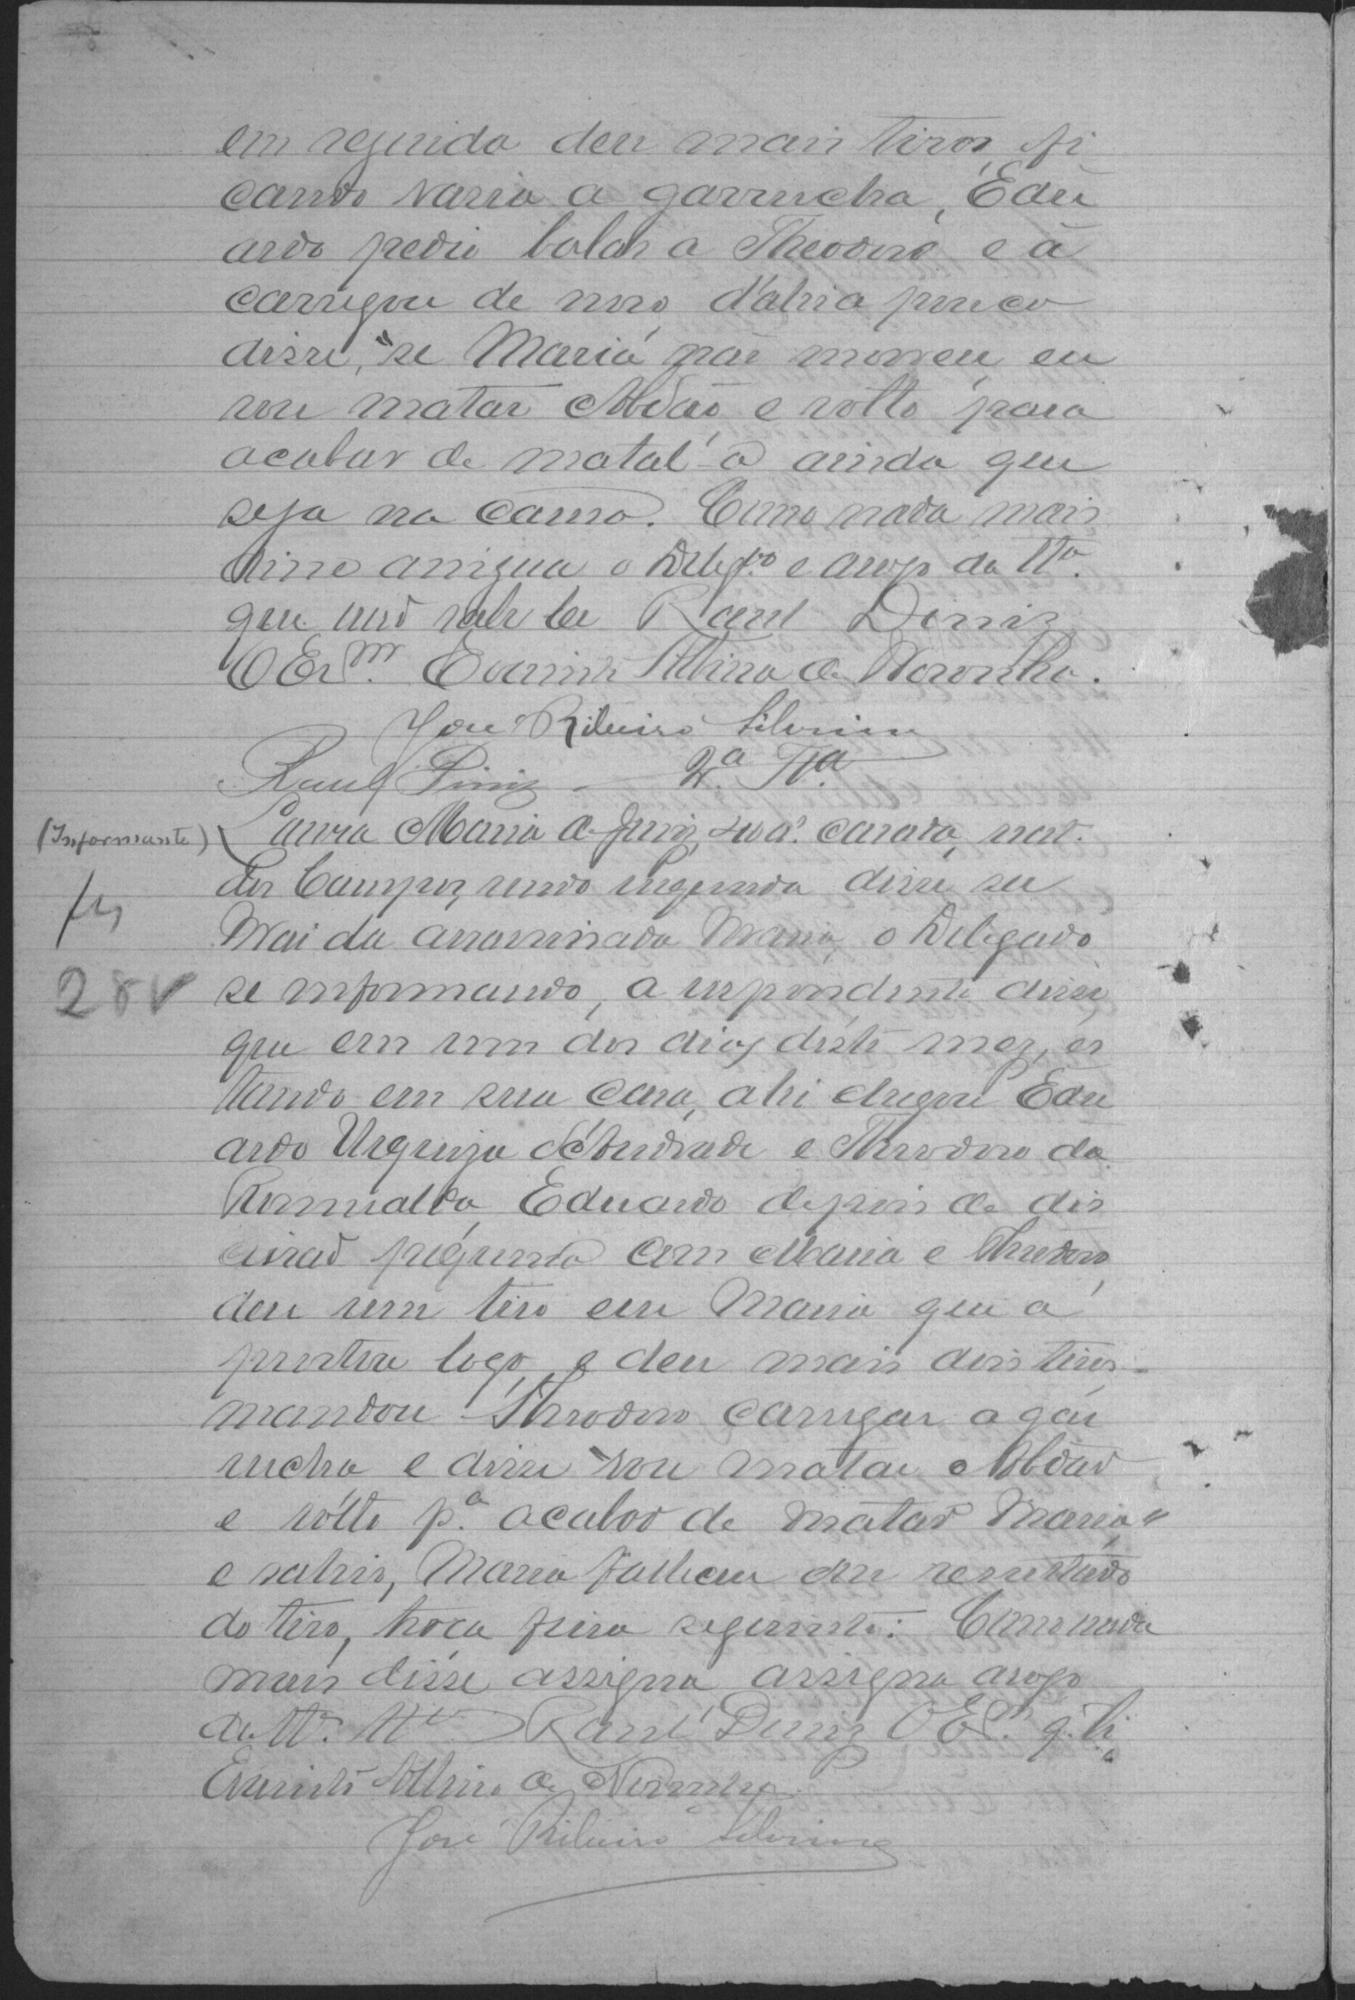 em seguida deu mais tiros, fi
cando vasia a garrucha, Edu
ardo pedio balas a Theodoro e a
carregou de novo d'ahi a pouco
disse, "se Maria não morreu eu
vou matar Abdão e volto para
acabar de matal'a ainda que
seja na cama. Como nada mais
disse assigna o Deleg.do e arogo da Tta.
que não sabe ler Raul Diniz
O Esm. Evaristo Albino de Noronha.
José Ribeiro Silverio
Raul Diniz - 2a. Tta.
(Informante) Laura Maria de Jesus, casada, nat.
dos Campos, sendo inquirida disse ser
Mai da assassinada Maria, o Delegado
28v se informando, a respondente disse
que em um dos dias deste mez, es
tando em sua casa, ahi chegou Edu
ardo Urquiza d'Andrade e Theodoro da
Romualda, Eduardo depois de dis
cussão pequena com Maria e Theodoro
deu um tiro em Maria que a
prostou logo, e deu mais dois tiros
mandou Theodoro carregar a gar
rucha e disse "vou matar Abdão
e vólto pa. acabar de matar Maria"
e sahio, Maria falleceu em resultado
do tiro, terça feira seguinte. Como nada
mais disse assigna assigna arogo
da Tta. Raul Diniz O Esm. q. li
Evaristo Albino de Noronha
José Ribeiro Silverio